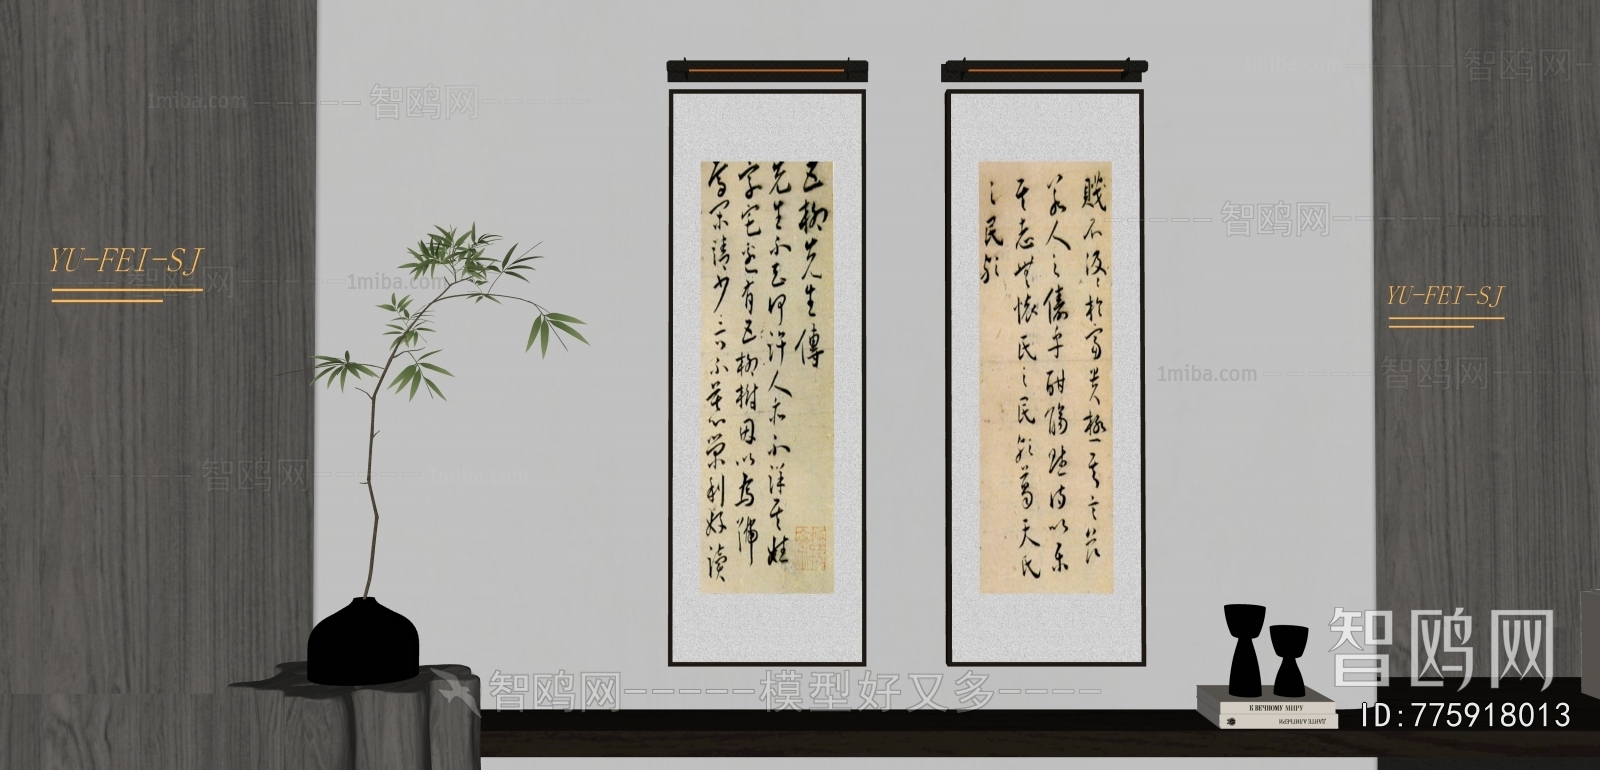 1miba.com
智鸥网
智鸥网
1miba.com
YU-FEI-SJ
五柳先生傳
先生不知何許人亦不詳其姓
字宅邊有五柳樹因以為號
焉閑靖少言不慕榮利好讀
賤不汲〻於富貴極其言茲
若人之儔乎酣觴賦詩以樂
其志無懷氏之民歟葛天氏
之民歟
智鸥网
智鸥网
1miba.com
YU-FEI-SJ
1miba.com
智鸥网
智鸥网
智鸥网-----模型好又多----
К ВЕЧНОМУ МИРУ
ДАНТЕ АЛИГЬЕРИ
智鸥网
ID:775918013